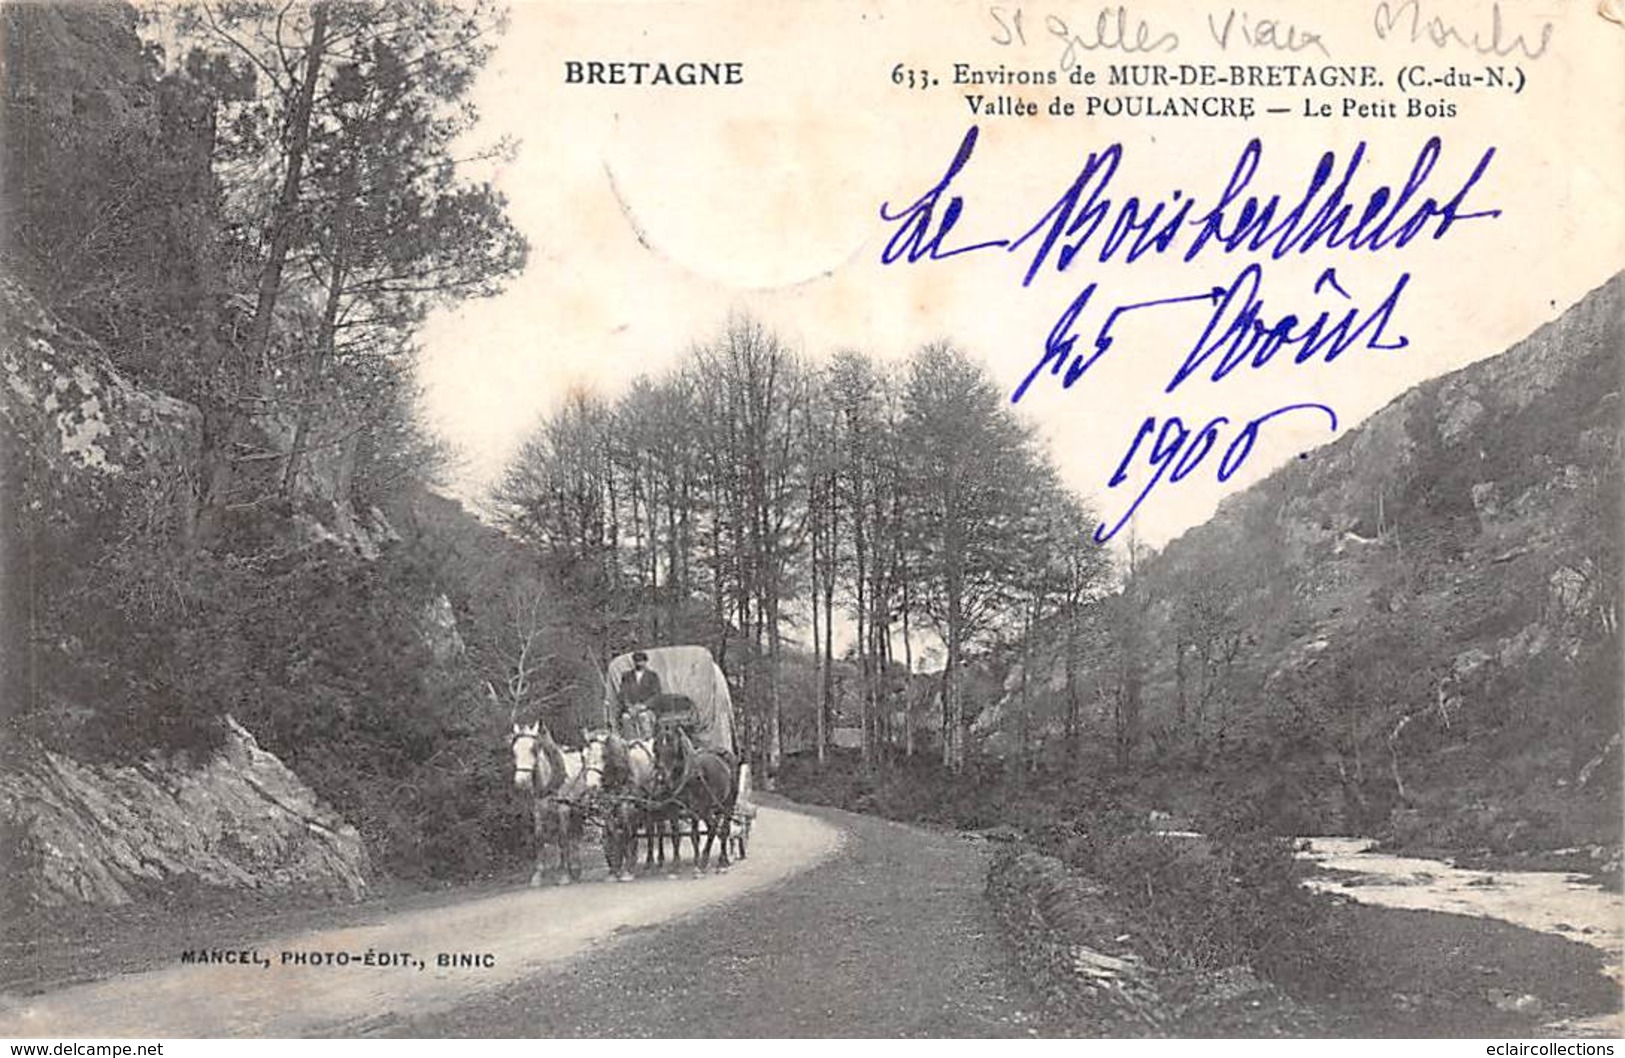 St gilles Vieux Marché
BRETAGNE
633. Environs de MUR-DE-BRETAGNE. (C.-du-N.)
Vallée de POULANCRE — Le Petit Bois
Le Boisberthelot
25 Août
1906
MANCEL, PHOTO-ÉDIT., BINIC
www.delcampe.net
eclaircollections